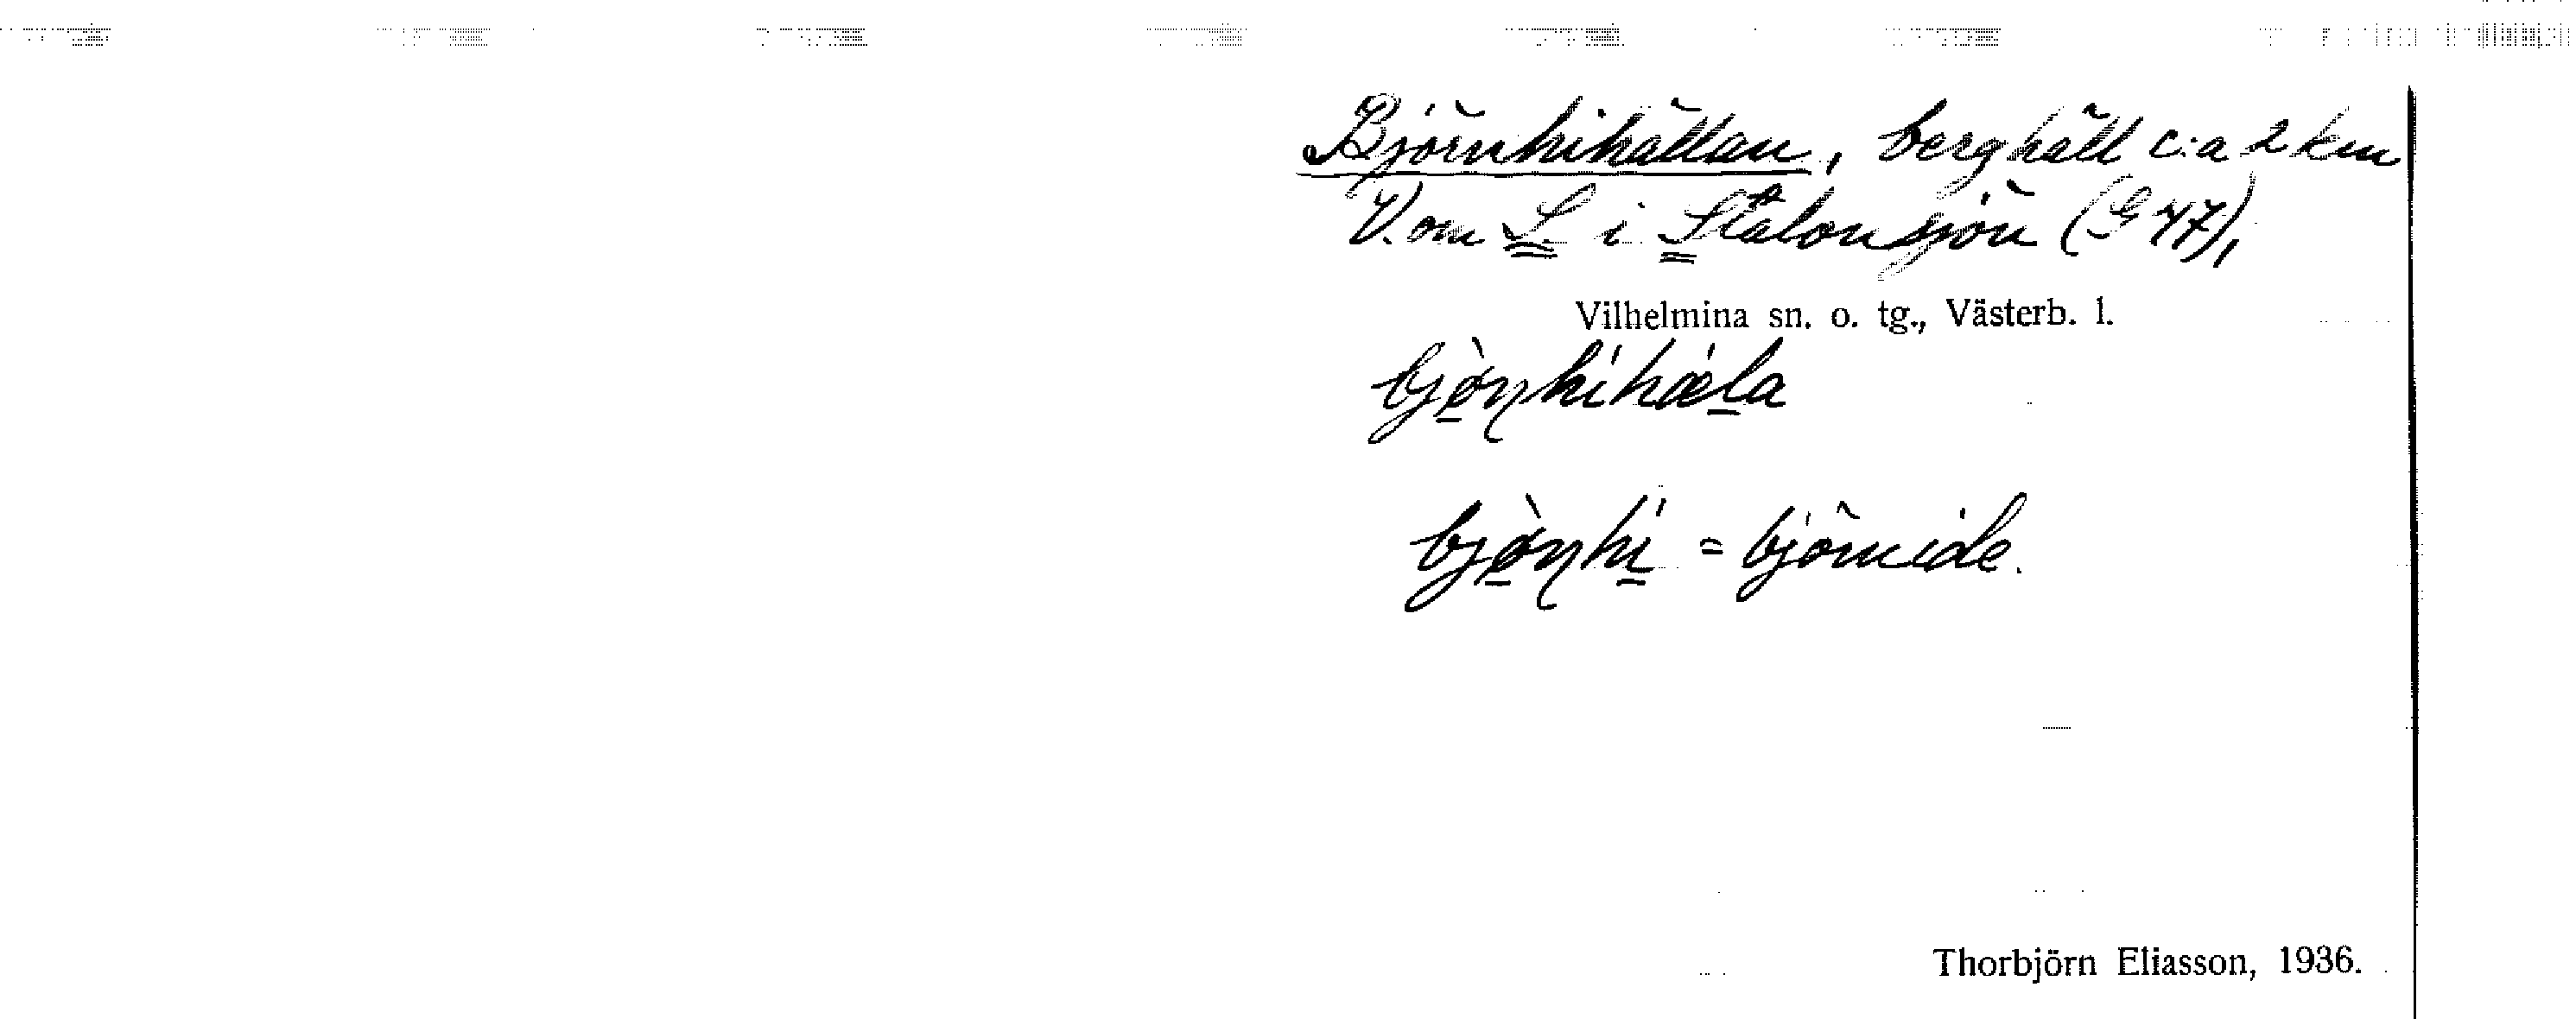 Björnhihällan, berghäll c:a 2 km
V. om S. i Stalonsjön (G 47),
Vilhelmina sn. o. tg., Västerb. l.
bjø̀ṇhihæla
bjø̀ṇhi = björnide.
Thorbjörn Eliasson, 1936.